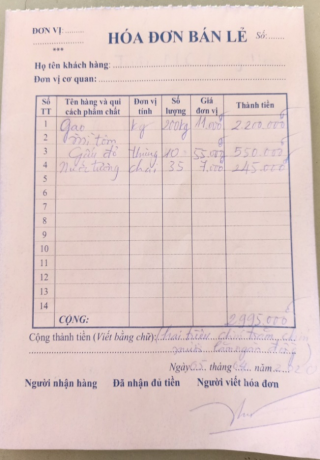 ĐƠN VỊ
HÓA ĐƠN BÁN LẺ Số:
***
Họ tên khách hàng:
Đơn vị cơ quan:
Số TT Tên hàng và qui cách phẩm chất Đơn vị tính Số lượng Giá đơn vị Thành tiền
1 Gạo kg 200kg 11.000đ 2.200.000đ
2 Mì tôm
3 Gấu đỏ thùng 10 55.000đ 550.000đ
4 Nước tương chai 35 7.000 245.000đ
5
6
7
8
9
10
11
12
13
14
CỘNG: 2.995.000đ
Cộng thành tiền (Viết bằng chữ): Hai triệu chín trăm chín
mươi lăm ngàn đồng
Ngày 05 tháng năm
Người nhận hàng Đã nhận đủ tiền Người viết hóa đơn